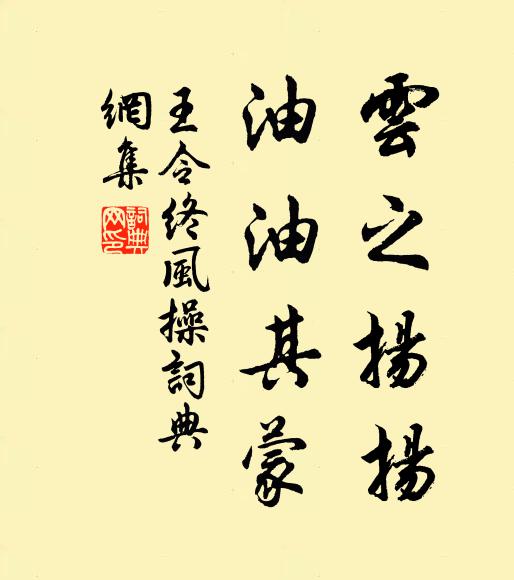 雲之揚揚
油油其蒙
王令終風操詞典
網集
詞典網印